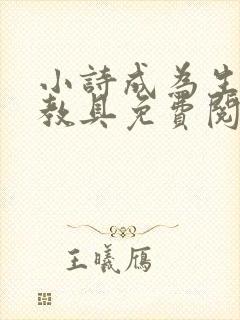 小詩成為生
教具免費閱
王曦雁